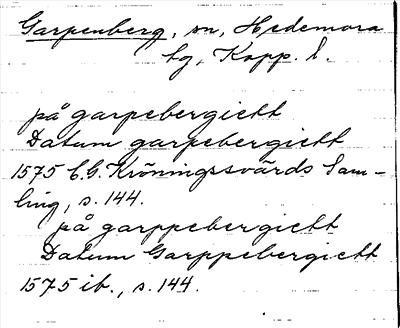 Garpenberg, sn, Hedemora
tg, Kopp. l.
på garpebergiett
Datum garpebergiett
1575 C.G. Kröningssvärds Sam-
ling, s. 144.
på garppebergiett
Datum Garppebergiett
1575 ib., s. 144.